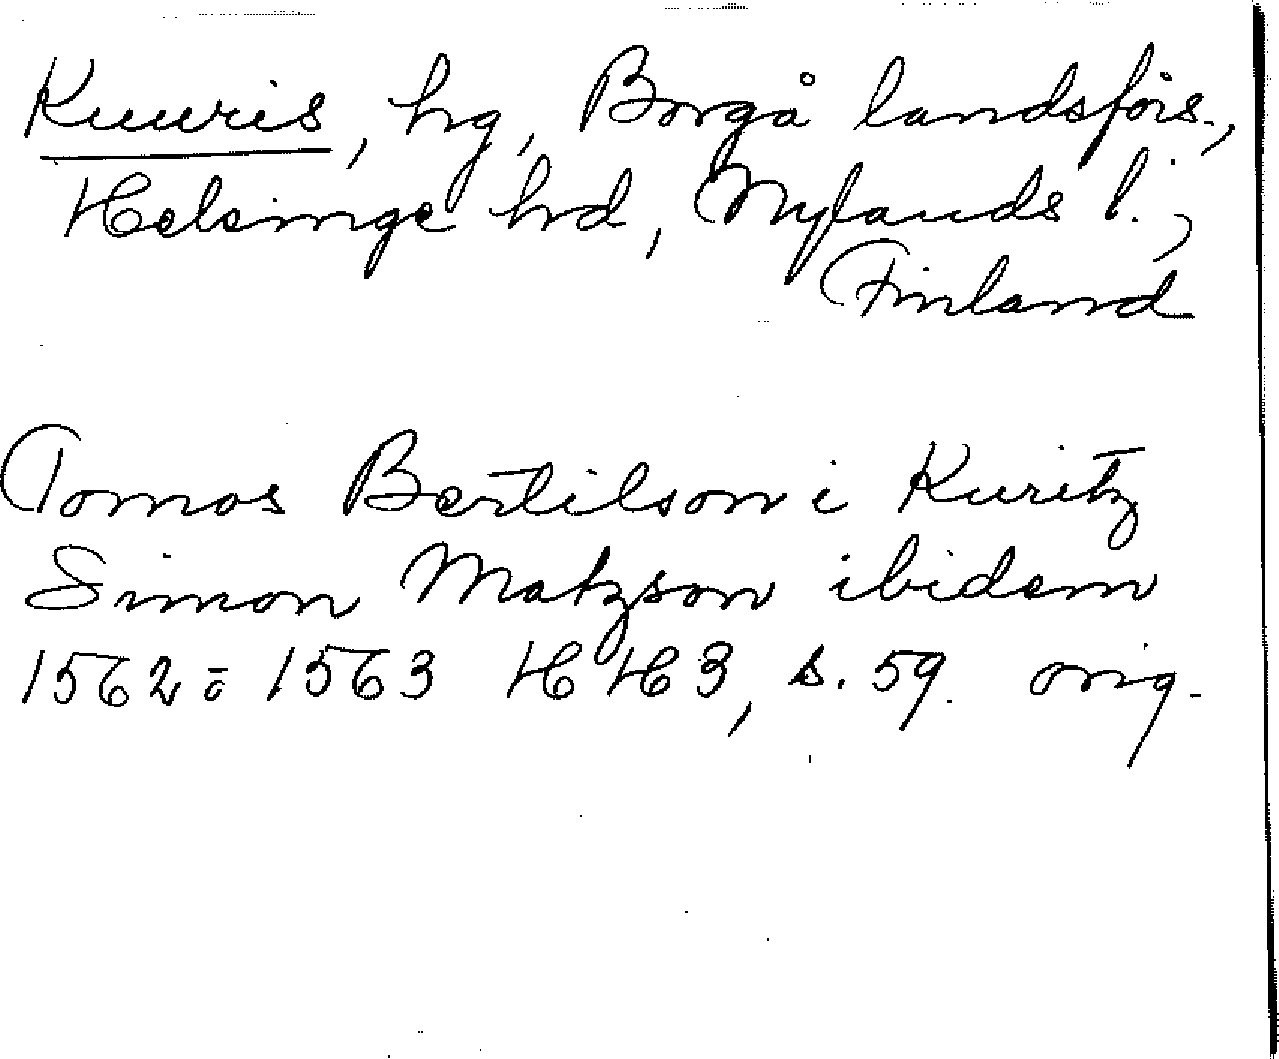 Kuuris, hg, Borgå landsförs.,
Helsinge hrd, Nylands l.,
Finland
Tomos Bertilson i Kuritz
Simon Matzson ibidem
1562 = 1563 HH3, s. 59. orig.